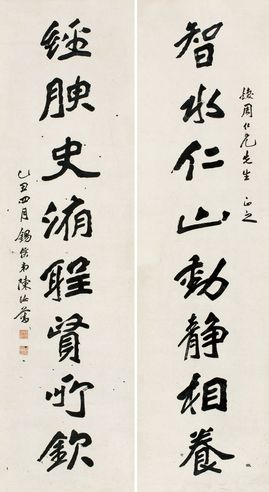 智水仁山動静相養
周仁兄先生 正之
經腴史聖賢所欽
己丑四月 錫侯弟陳